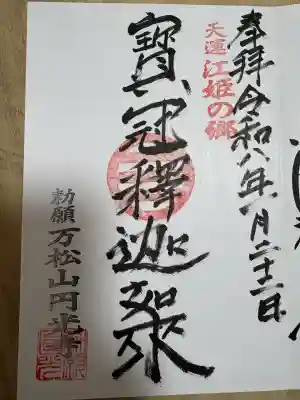 奉拝令和八年一月二十二日
天運江姫の郷
寶冠釋迦如來
勅願万松山円光寺